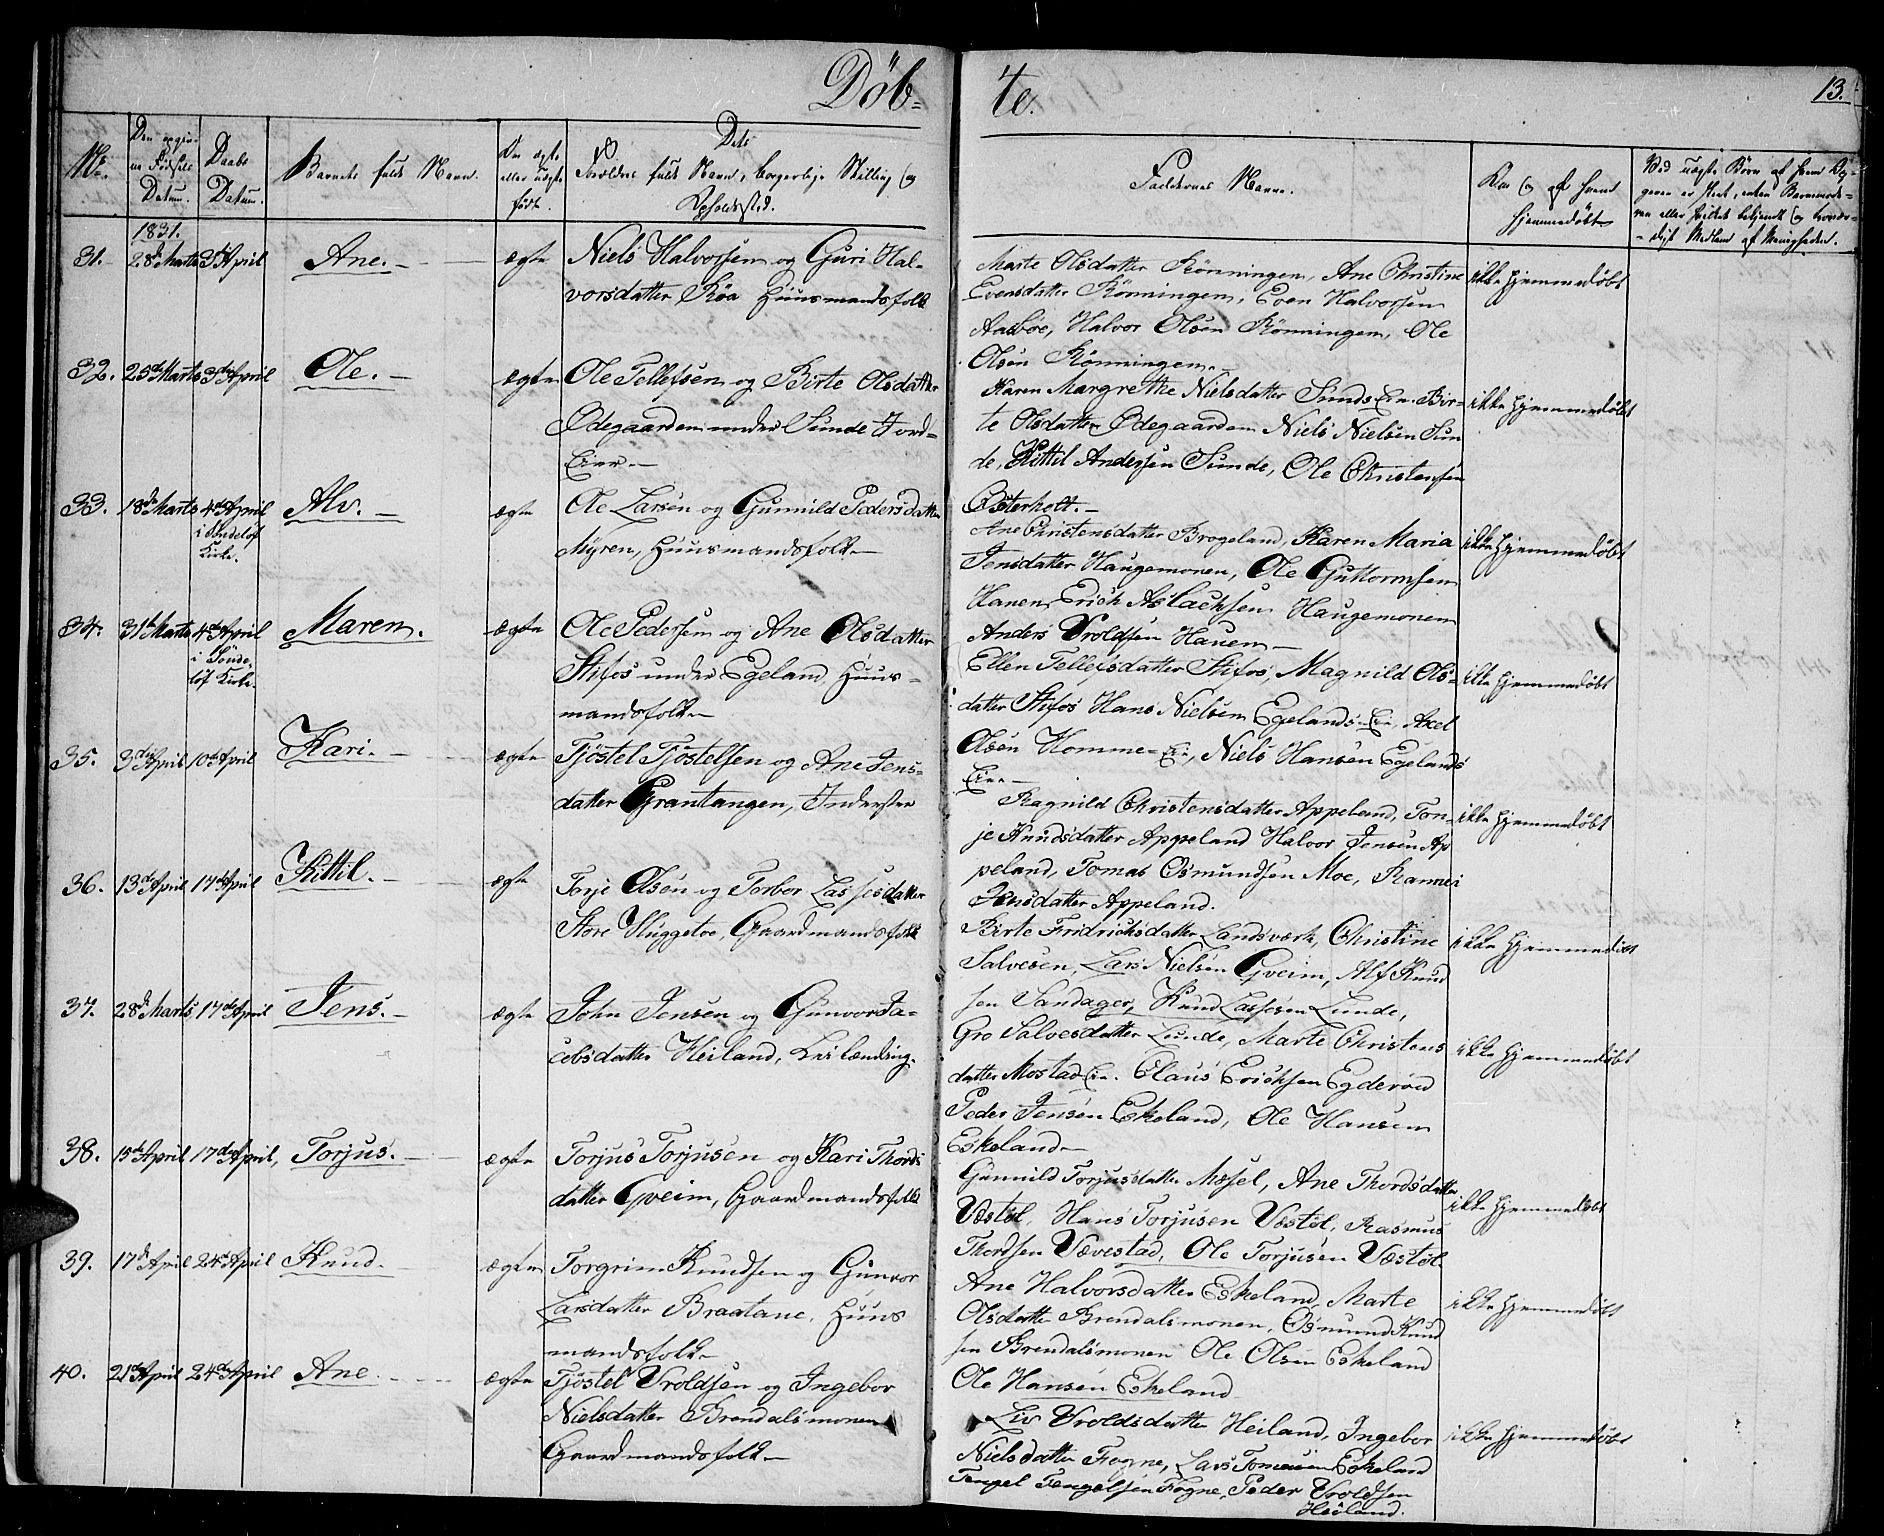 Döb-
te.
13.
No.
Den opgiv-
ne Födsels
Datum.
Daabs
Datum.
Barnets fulde Navn.
Om ægte
eller uægte
født.
Dets
Forældres fulde Navn, borgerlige Stilling og
Opholdssted.
Faddernes Navne.
Om og af hvem
hjemmedøbt
1831.
31. 28de Marts 3de April Ane. ægte
Niels Halvorsen og Guri Hal-
vorsdatter Röa Huusmandsfolk
Marte Olsdatter Rönningen, Ane Christine
Evensdatter Rönningen, Even Halvorsen
Aasböe, Halvor Olsen Rönningen, Ole
Olsen Rönningen.
ikke hjemmedøbt
32. 25de Marts 3de April Ole. ægte
Ole Tellefsen og Birte Olsdatter
Ødegaarden under Sunde Jord-
Eier.
Karen Margrethe Nielsdatter Sunds Eie. Bir-
te Olsdatter Ødegaarden Niels Nielsen Sun
de, Kittil Andersen Sunde, Ole Christensen
Østerholt.
ikke hjemmedøbt
33. 18de Marts 4de April
i Söndeløf
Kirke.
Alv. ægte
Ole Larsen og Gunnild Pedersdatter
Myren, Huusmandsfolk
Ane Christensdatter Brogeland, Karen Maria
Jensdatter Haugemonen, Ole Guttormsen
Hanen, Erich Aslachsen Haugemonen
Anders Vroldsen Hauen
ikke hjemmedøbt
34. 31te Marts 4de April
i Sönde-
løf Kirke.
Maren. ægte
Ole Pedersen og Ane Olsdatter
Stifos under Egeland, Huus-
mandsfolk
Ellen Tellefsdatter Stifos, Magnild Ols-
datter Stifos Hans Nielsen Egelands Eie, Axel
Olsen Homme-Eie, Niels Hansen Egelands
Eie
ikke hjemmedøbt
35. 3de April 10de April Kari. ægte
Tjöstel Tjöstelsen og Ane Jens-
datter Grantangen, Inderster
Ragnild Christensdatter Appeland, Ton-
je Knudsdatter Appeland Halvor Jensen Ap
peland, Tomas Osmundsen Moe, Rannei
Jensdatter Appeland.
ikke hjemmedøbt
36. 13de April 17de April Kittil. ægte
Torje Olsen og Torbor Lassesdatter
Store Huggetoe, Gaardmandsfolk
Birte Fridrichsdatter Landsværk, Christine
Salvesen, Lars Nielsen Gveim, Alf Knud
sen Sandager, Knud Lassesen Lunde,
37. 28de Marts 17de April Jens. ægte
John Jensen og Gunvor Ja-
cobsdatter Heiland, Leilænding.
Gro Salvesdatter Lunde, Marte Christens
datter Mostad Eie. Claus Erichsen Egderöed
Peder Jensen Eskeland, Ole Hansen
Eskeland
ikke hjemmedøbt
38. 15de April 17de April, Torjus. ægte
Torjus Torjusen og Kari Thords
datter Gveim, Gaardmandsfolk
Gunnild Torjusdatter Mosel, Ane Thordsdatter
Væstøl, Hans Torjusen Væstøl, Rasmus
Thordsen Vævestad, Ole Torjusen Væstøl
ikke hjemmedøbt
39. 17de April 24de April Knud. ægte
Torgrim Knudsen og Gunvor
Larsdatter Braatane, Huus
mandsfolk
Ane Halvorsdatter Eskeland, Marte
Olsdatter Brendalsmonen, Osmund Knud
sen Brendalsmonen Ole Olsen Eskeland
Ole Hansen Eskeland
ikke hjemmedøbt
40. 21de April 24de April Ane. ægte
Tjöstel Vroldsen og Ingebor
Nielsdatter Brendalsmonen
Gaardmandsfolk
Liv Vroldsdatter Heiland, Ingebor
Nielsdatter Fogne, Lars Eskeland
Tengel Tengelsen Fogne, Peder Vroldsen
Heiland.
ikke hjemmedøbt